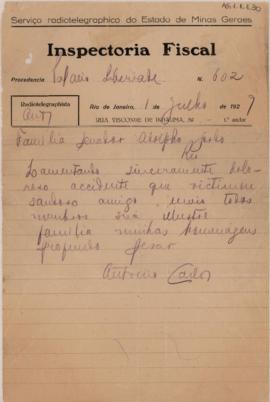 Serviço radiotelegraphico do Estado de Minas Geraes
Inspectoria Fiscal
Procedencia Palacio Liberdade N. 602
Radiotelegraphista
Rio de Janeiro, 1 de julho de 1929
RUA VISCONDE DE INHAUMA, 1.º andar
Familia Senador Adolpho Gordo
Rio
Lamentando sinceramente dolo-
roso accidente que victimou
saudoso amigo envio todos
membros sua illustre
familia minhas homenagens
profundo pesar
Antonio Carlos